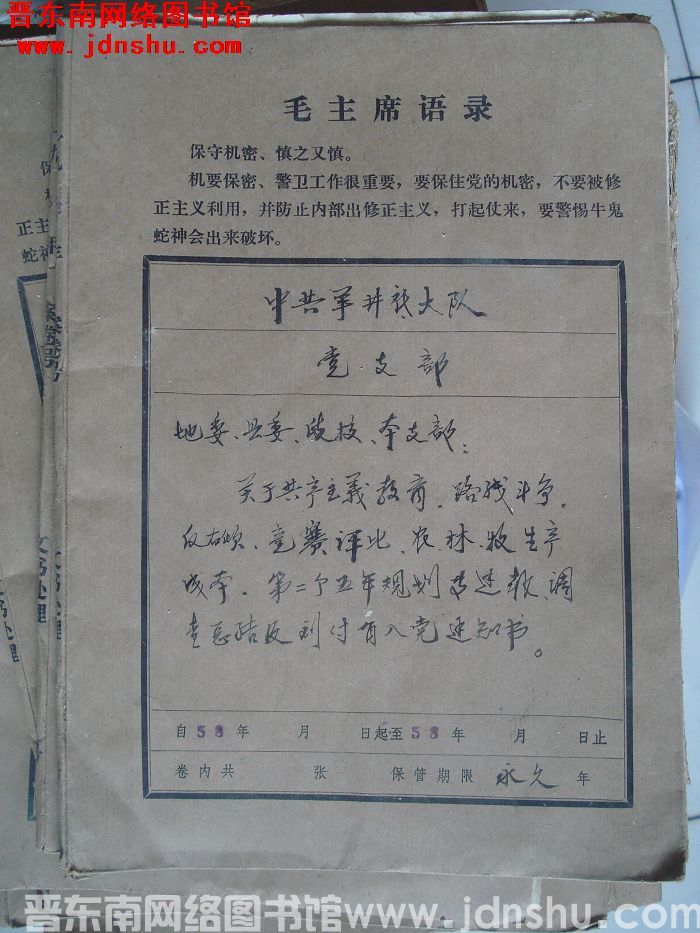 晋东南网络图书馆
www.jdnshu.com
毛主席语录
保守机密、慎之又慎。
机要保密、警卫工作很重要，要保住党的机密，不要被修
正主义利用，并防止内部出修正主义，打起仗来，要警惕牛鬼
蛇神会出来破坏。
中共羊井底大队
党支部
地委、县委、政校、本支部：
关于共产主義教育、路线斗争、
反右倾、竞赛评比、农、林、牧生产
成本、第二个五年规划
查总结及 入党通知书。
自58年 月 日起至58年 月 日止
卷内共 张 保管期限 永久 年
正主
蛇神
案卷号
文书处理
文书处理
晋东南网络图书馆www.jdnshu.com